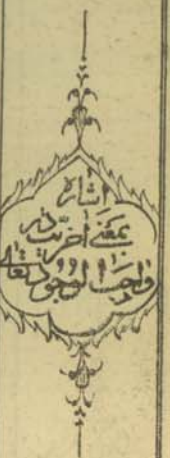 اشاره
بمعنی آخریت در
واجب الوجود تعالی